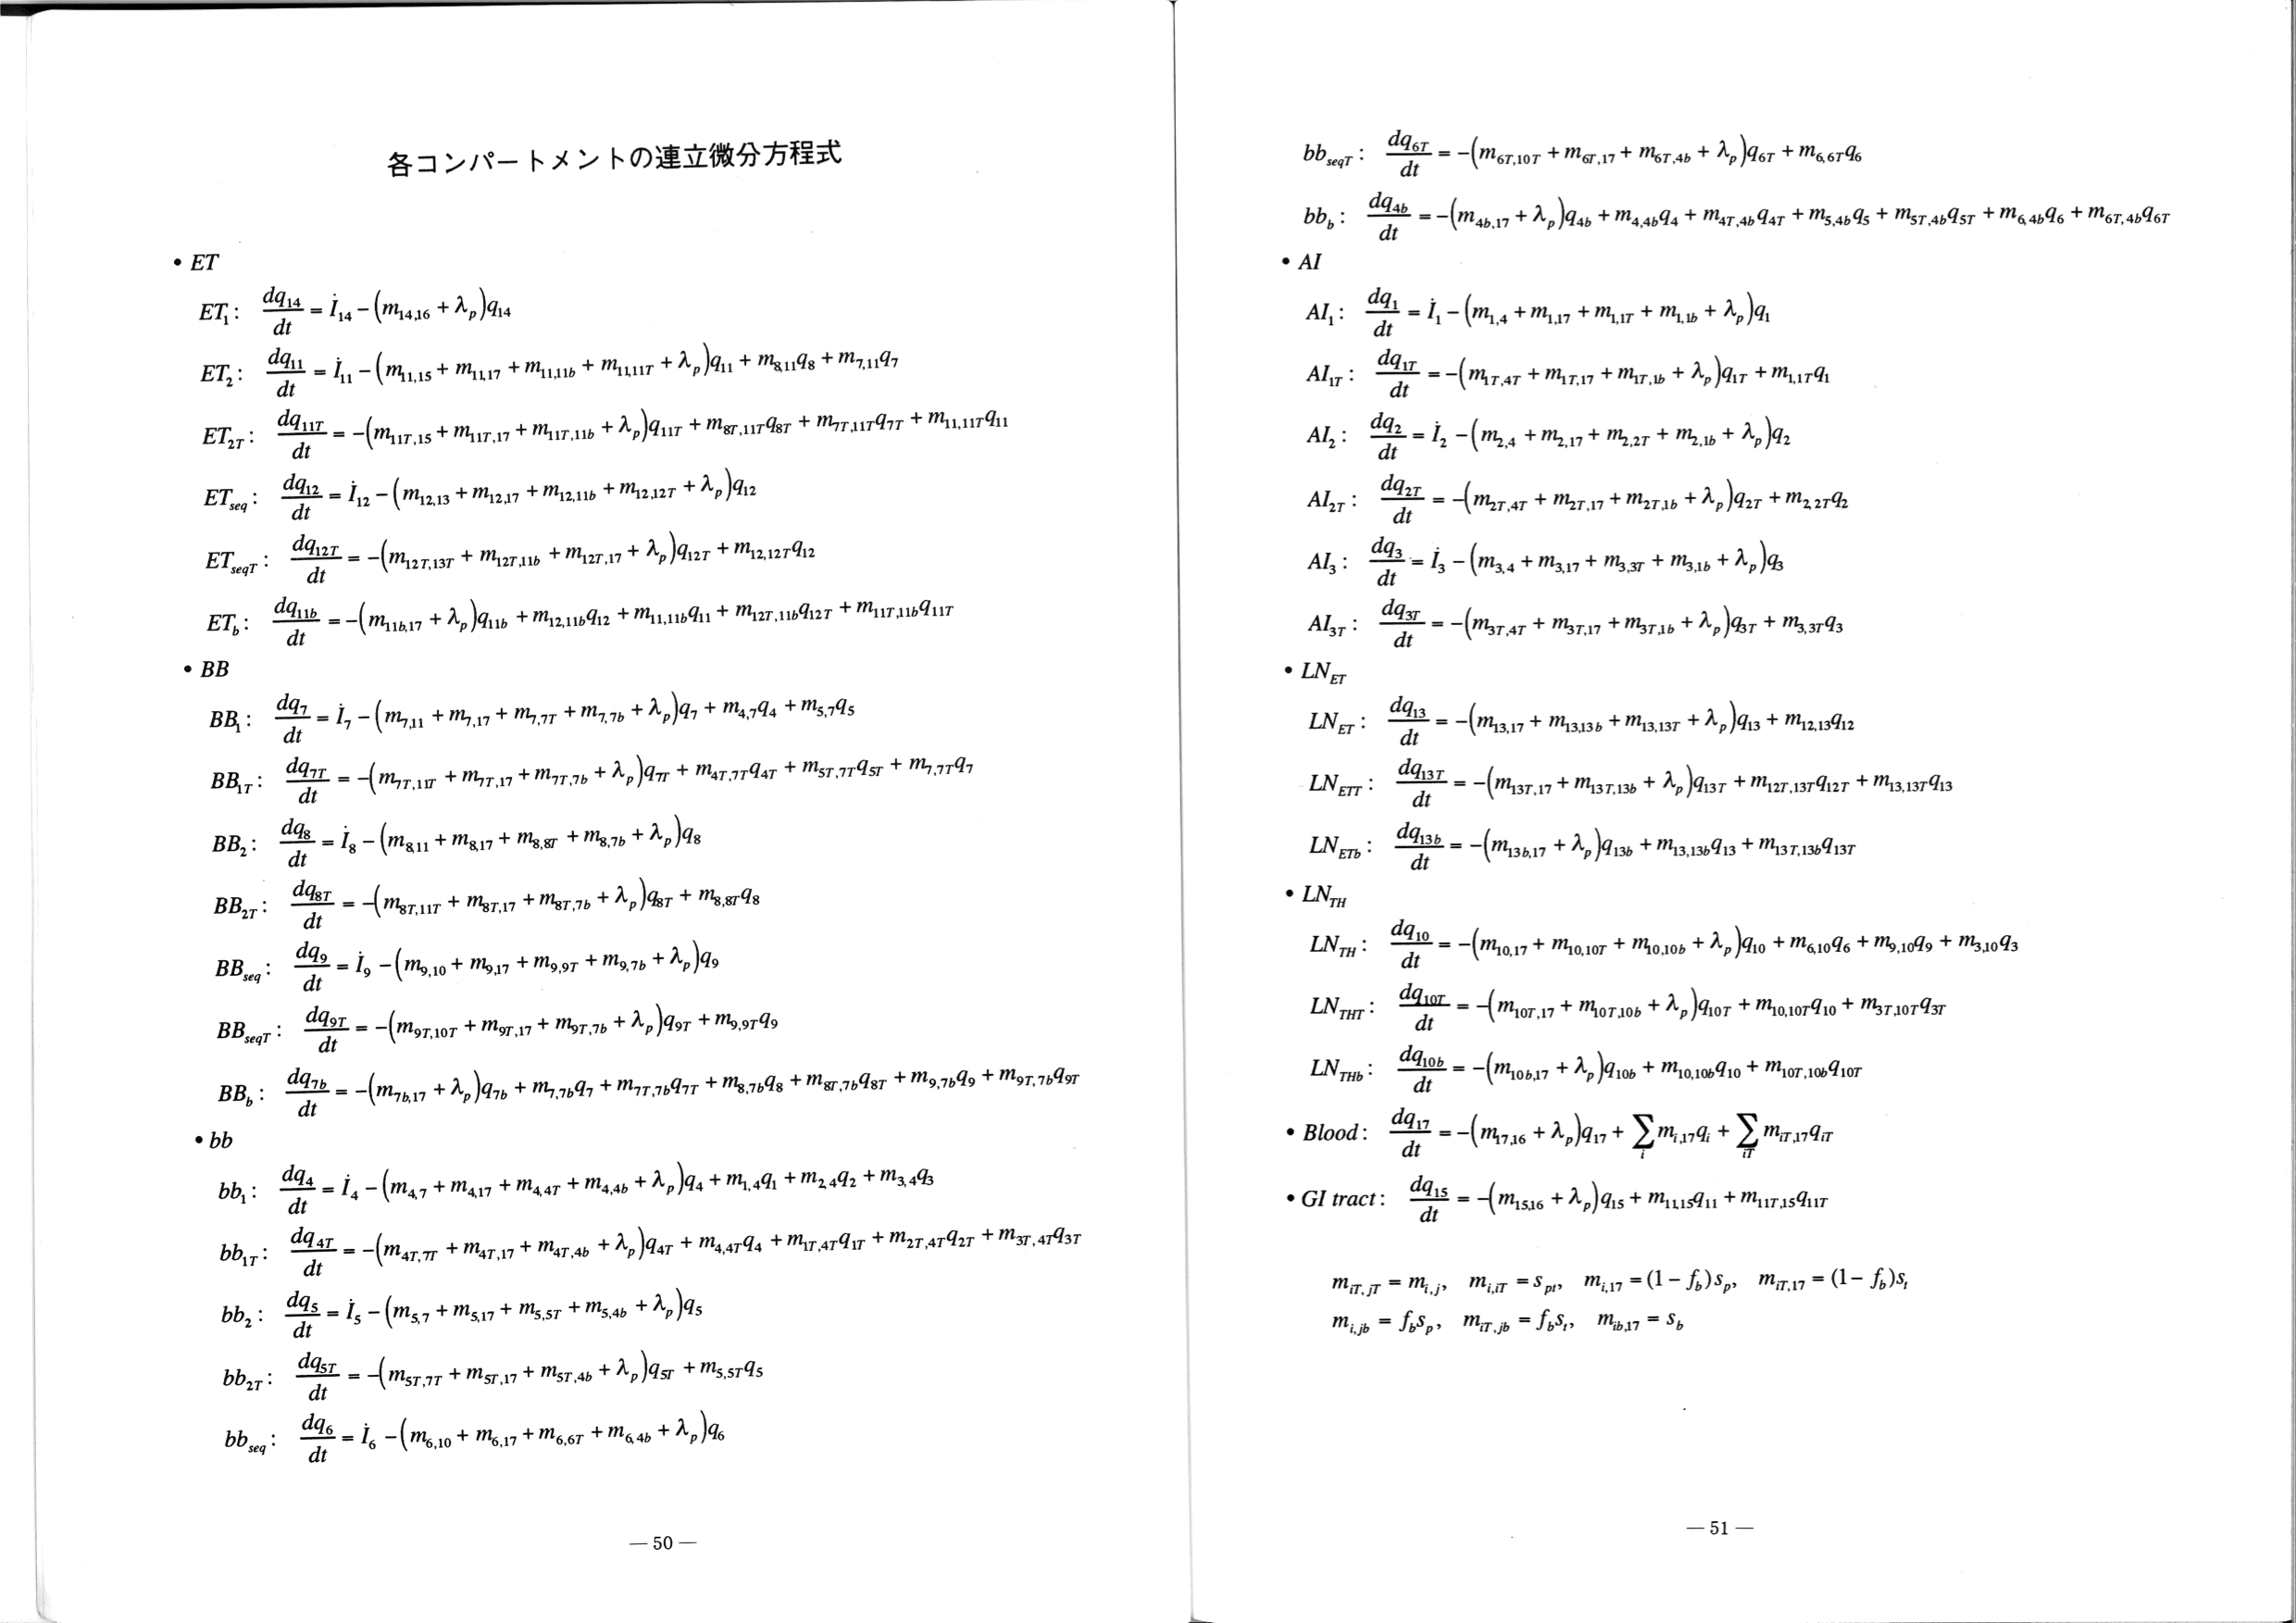 各コンパートメントの連立微分方程式
• ET
ET₁: dq₁₄/dt = İ₁₄ − (m₁₄,₁₆ + λ_p)q₁₄
ET₂: dq₁₁/dt = İ₁₁ − (m₁₁,₁₅ + m₁₁,₁₇ + m₁₁,₁₁b + m₁₁,₁₁T + λ_p)q₁₁ + m₈,₁₁q₈ + m₇,₁₁q₇
ET₂T: dq₁₁T/dt = −(m₁₁T,₁₅ + m₁₁T,₁₇ + m₁₁T,₁₁b + λ_p)q₁₁T + m₈T,₁₁Tq₈T + m₇T,₁₁Tq₇T + m₁₁,₁₁Tq₁₁
ET_seq: dq₁₂/dt = İ₁₂ − (m₁₂,₁₃ + m₁₂,₁₇ + m₁₂,₁₁b + m₁₂,₁₂T + λ_p)q₁₂
ET_seqT: dq₁₂T/dt = −(m₁₂T,₁₃T + m₁₂T,₁₁b + m₁₂T,₁₇ + λ_p)q₁₂T + m₁₂,₁₂Tq₁₂
ET_b: dq₁₁b/dt = −(m₁₁b,₁₇ + λ_p)q₁₁b + m₁₂,₁₁bq₁₂ + m₁₁,₁₁bq₁₁ + m₁₂T,₁₁bq₁₂T + m₁₁T,₁₁bq₁₁T
• BB
BB₁: dq₇/dt = İ₇ − (m₇,₁₁ + m₇,₁₇ + m₇,₇T + m₇,₇b + λ_p)q₇ + m₄,₇q₄ + m₅,₇q₅
BB₁T: dq₇T/dt = −(m₇T,₁₁T + m₇T,₁₇ + m₇T,₇b + λ_p)q₇T + m₄T,₇Tq₄T + m₅T,₇Tq₅T + m₇,₇Tq₇
BB₂: dq₈/dt = İ₈ − (m₈,₁₁ + m₈,₁₇ + m₈,₈T + m₈,₇b + λ_p)q₈
BB₂T: dq₈T/dt = −(m₈T,₁₁T + m₈T,₁₇ + m₈T,₇b + λ_p)q₈T + m₈,₈Tq₈
BB_seq: dq₉/dt = İ₉ − (m₉,₁₀ + m₉,₁₇ + m₉,₉T + m₉,₇b + λ_p)q₉
BB_seqT: dq₉T/dt = −(m₉T,₁₀T + m₉T,₁₇ + m₉T,₇b + λ_p)q₉T + m₉,₉Tq₉
BB_b: dq₇b/dt = −(m₇b,₁₇ + λ_p)q₇b + m₇,₇bq₇ + m₇T,₇bq₇T + m₈,₇bq₈ + m₈T,₇bq₈T + m₉,₇bq₉ + m₉T,₇bq₉T
• bb
bb₁: dq₄/dt = İ₄ − (m₄,₇ + m₄,₁₇ + m₄,₄T + m₄,₄b + λ_p)q₄ + m₁,₄q₁ + m₂,₄q₂ + m₃,₄q₃
bb₁T: dq₄T/dt = −(m₄T,₇T + m₄T,₁₇ + m₄T,₄b + λ_p)q₄T + m₄,₄Tq₄ + m₁T,₄Tq₁T + m₂T,₄Tq₂T + m₃T,₄Tq₃T
bb₂: dq₅/dt = İ₅ − (m₅,₇ + m₅,₁₇ + m₅,₅T + m₅,₄b + λ_p)q₅
bb₂T: dq₅T/dt = −(m₅T,₇T + m₅T,₁₇ + m₅T,₄b + λ_p)q₅T + m₅,₅Tq₅
bb_seq: dq₆/dt = İ₆ − (m₆,₁₀ + m₆,₁₇ + m₆,₆T + m₆,₄b + λ_p)q₆
— 50 —
bb_seqT: dq₆T/dt = −(m₆T,₁₀T + m₆T,₁₇ + m₆T,₄b + λ_p)q₆T + m₆,₆Tq₆
bb_b: dq₄b/dt = −(m₄b,₁₇ + λ_p)q₄b + m₄,₄bq₄ + m₄T,₄bq₄T + m₅,₄bq₅ + m₅T,₄bq₅T + m₆,₄bq₆ + m₆T,₄bq₆T
• AI
AI₁: dq₁/dt = İ₁ − (m₁,₄ + m₁,₁₇ + m₁,₁T + m₁,₁b + λ_p)q₁
AI₁T: dq₁T/dt = −(m₁T,₄T + m₁T,₁₇ + m₁T,₁b + λ_p)q₁T + m₁,₁Tq₁
AI₂: dq₂/dt = İ₂ − (m₂,₄ + m₂,₁₇ + m₂,₂T + m₂,₁b + λ_p)q₂
AI₂T: dq₂T/dt = −(m₂T,₄T + m₂T,₁₇ + m₂T,₁b + λ_p)q₂T + m₂,₂Tq₂
AI₃: dq₃/dt = İ₃ − (m₃,₄ + m₃,₁₇ + m₃,₃T + m₃,₁b + λ_p)q₃
AI₃T: dq₃T/dt = −(m₃T,₄T + m₃T,₁₇ + m₃T,₁b + λ_p)q₃T + m₃,₃Tq₃
• LN_ET
LN_ET: dq₁₃/dt = −(m₁₃,₁₇ + m₁₃,₁₃b + m₁₃,₁₃T + λ_p)q₁₃ + m₁₂,₁₃q₁₂
LN_ETT: dq₁₃T/dt = −(m₁₃T,₁₇ + m₁₃T,₁₃b + λ_p)q₁₃T + m₁₂T,₁₃Tq₁₂T + m₁₃,₁₃Tq₁₃
LN_ETb: dq₁₃b/dt = −(m₁₃b,₁₇ + λ_p)q₁₃b + m₁₃,₁₃bq₁₃ + m₁₃T,₁₃bq₁₃T
• LN_TH
LN_TH: dq₁₀/dt = −(m₁₀,₁₇ + m₁₀,₁₀T + m₁₀,₁₀b + λ_p)q₁₀ + m₆,₁₀q₆ + m₉,₁₀q₉ + m₃,₁₀q₃
LN_THT: dq₁₀T/dt = −(m₁₀T,₁₇ + m₁₀T,₁₀b + λ_p)q₁₀T + m₁₀,₁₀Tq₁₀ + m₃T,₁₀Tq₃T
LN_THb: dq₁₀b/dt = −(m₁₀b,₁₇ + λ_p)q₁₀b + m₁₀,₁₀bq₁₀ + m₁₀T,₁₀bq₁₀T
• Blood: dq₁₇/dt = −(m₁₇,₁₆ + λ_p)q₁₇ + ∑_i m_i,₁₇q_i + ∑_iT m_iT,₁₇q_iT
• GI tract: dq₁₅/dt = −(m₁₅,₁₆ + λ_p)q₁₅ + m₁₁,₁₅q₁₁ + m₁₁T,₁₅q₁₁T
m_iT,jT = m_i,j, m_i,iT = s_pt, m_i,₁₇ = (1 − f_b)s_p, m_iT,₁₇ = (1 − f_b)s_t
m_i,jb = f_b s_p, m_iT,jb = f_b s_t, m_ib,₁₇ = s_b
— 51 —